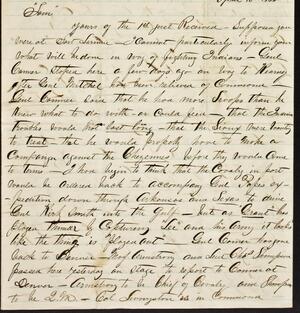 April 10 1865
Yours of the 1st just Received - Suppose you
were at Fort Laramie - I cannot particularly inform you
What will be done in way of fighting Indians - Genl
Conner Stoped here a few days ago on way to Kearny
after Genl Mitchel has been relieved of Command -
Genl Conner Said that he had more Troops than he
knew what to do with or could feed - that the Indian
troubles would not last long - that the Sioux were ready
to treat - that he would probably have to make a
Campaign against the Cheyennes before they would Come
to terms - I had begun to think that the Cavalry in post
would be ordered back to accompany Genl Popes ex-
pedition down through Arkansas and Texas to drive
Genl Kirb Smith into the Gulf - but as Grant has
played Thunder by Capturing Lee and his Army it looks
like the thing is played out - Genl Conner has gone
back to Denver - Maj Armstrong and Lieut Thompson
passed here yesterday on Stage to report to Conner at
Denver - Armstrong to be Chief of Cavalry and Thompson
to be Q.M. - Col Livingston is in Command